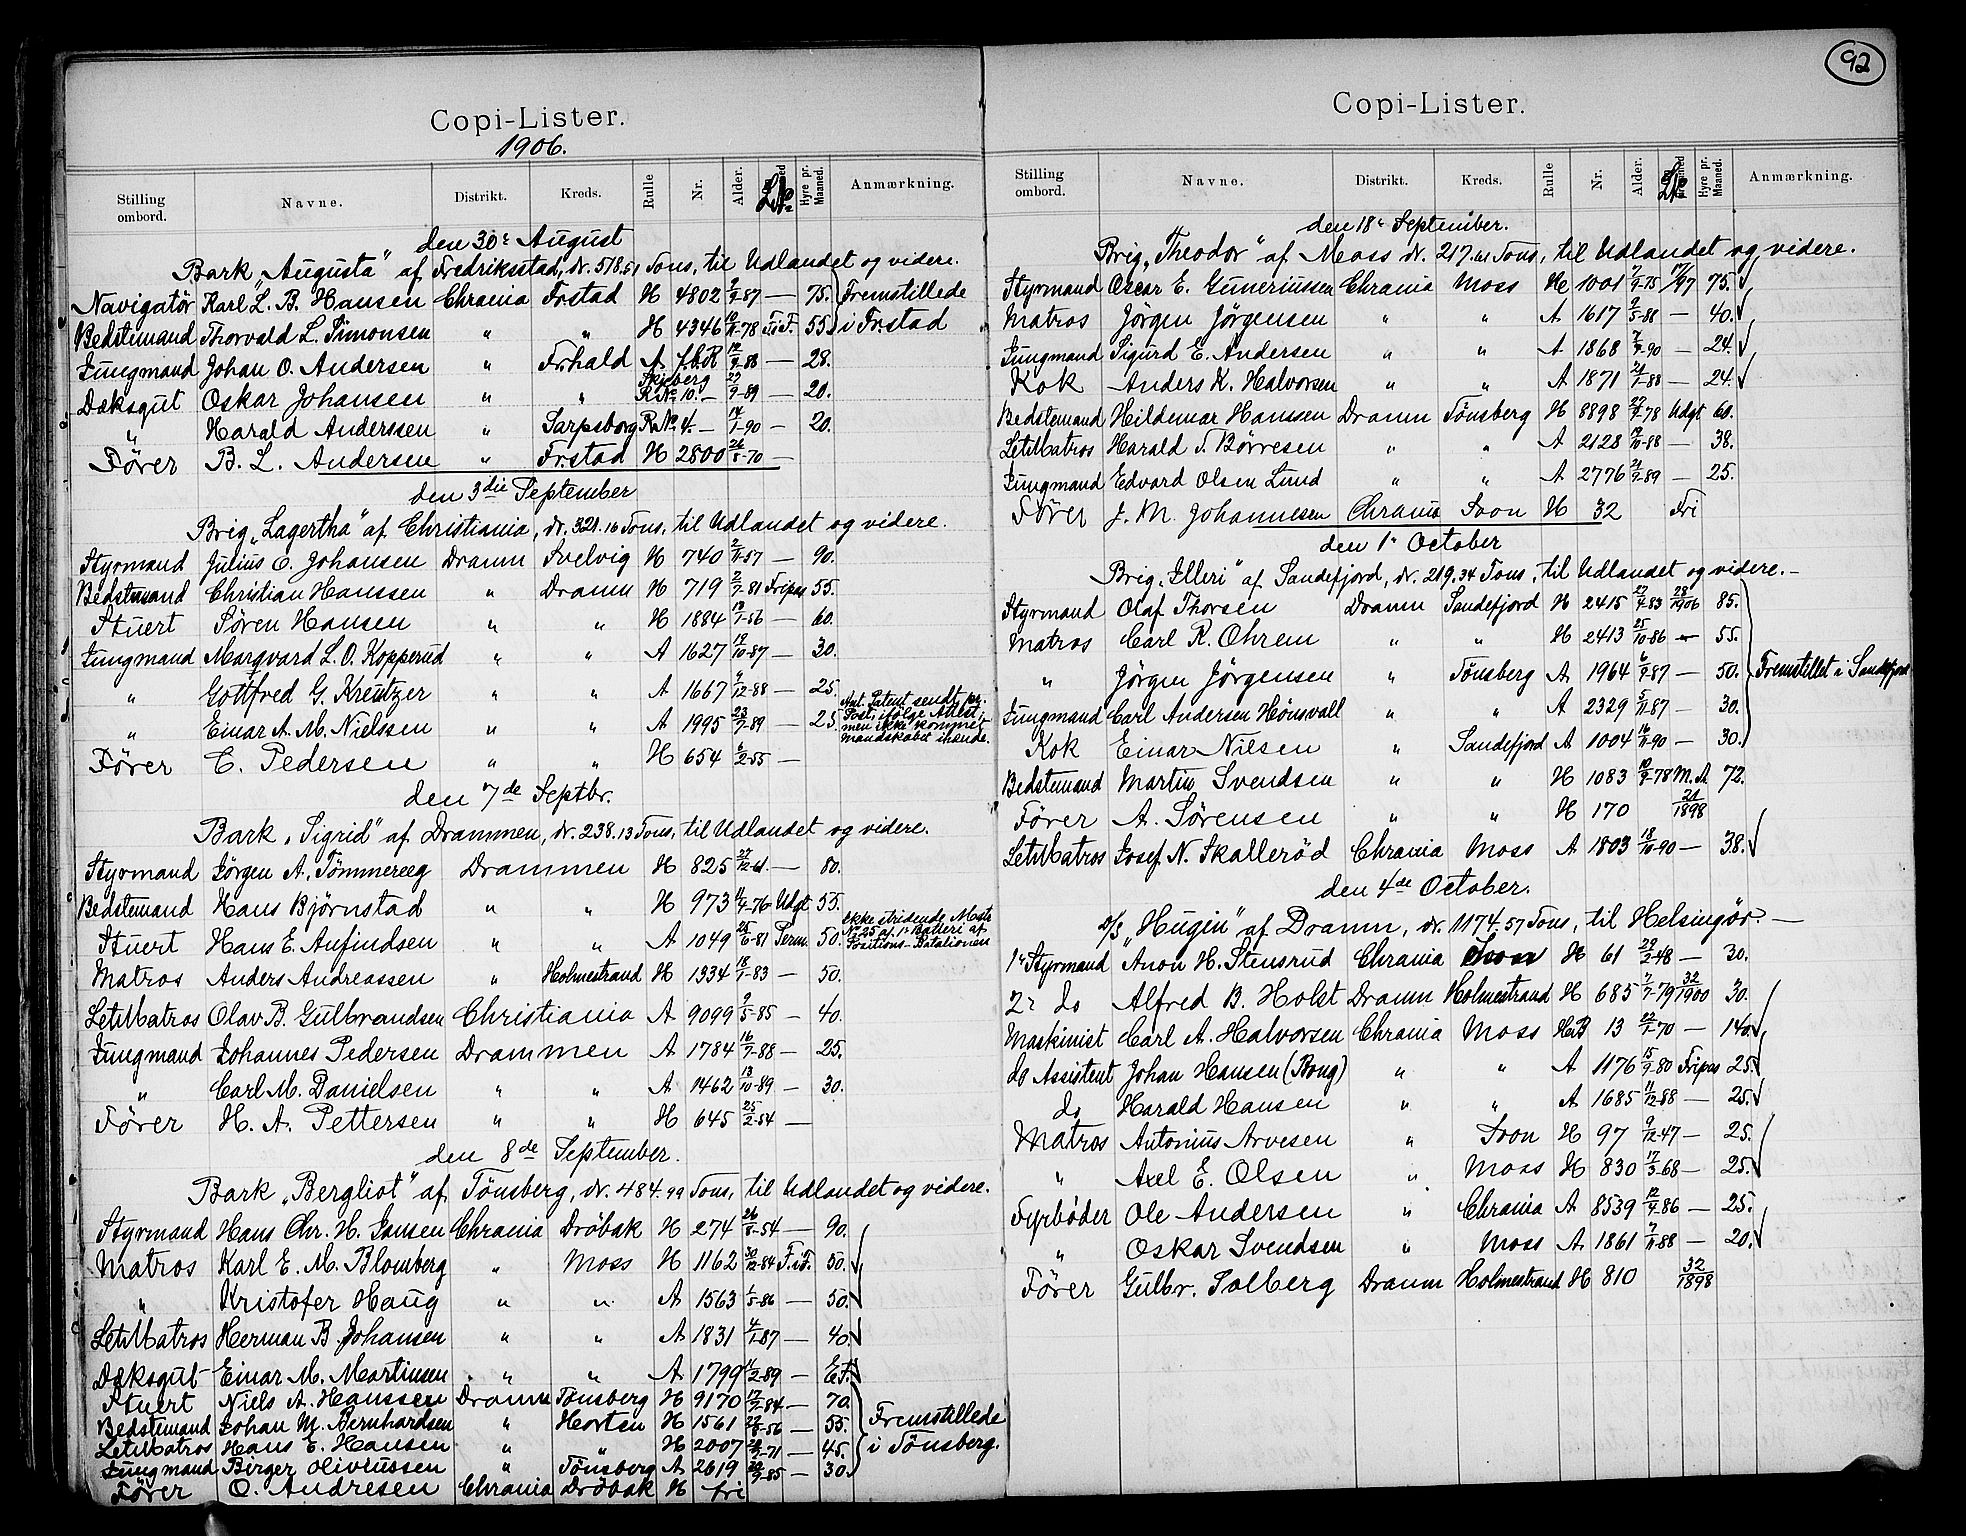 92
Copi-Lister.
1906.
Stilling ombord. Navne. Distrikt. Kreds. Rulle Nr. Alder. Hyre pr. Maaned. Anmærkning.
den 30te August
Bark "Augusta" af Fredriksstad, dr. 518.51 Tons, til Udlandet og videre.
Navigatör Karl L. B. Hansen Chrania Frstad H 4802 /9-87 — 75. Fremstillede
Bedstemand Thorvald L. Simonsen " " H 4346 10/11-78 F.i F. 55. i Frstad
Jungmand Johan O. Andersen " Frhald A f.b.R 12/9-88 — 28.
Dæksgut Oskar Johansen " " Skjeberg R.No 10. — 27/9-89 — 20.
" Harald Anderssen " Sarpsborg R.No 4. — 14/1-90 — 20.
Förer B. L. Andersen " Frstad H 2800 26/5-70 —
den 3die September
Brig "Lagertha" af Christiania, dr. 321.16 Tons, til Udlandet og videre.
Styrmand Julius C. Johansen Dramn Svelvig H 740 2/11-57 — 90.
Bedstemand Christian Hanssen " Dramn H 719 2/7-81 Fripas 55.
Stuert Sören Hansen " " H 1884 13/1-56 — 60.
Jungmand Marqvard L. O. Kopperud " " A 1627 19/10-87 — 30.
" Gottfred G. Kreutzer " " A 1667 9/12-88 — 25.
" Einar A. M. Nielssen " " A 1995 23/7-89 — 25. Ant. Patent sendt pr. Post, ifölge Attest, men ikke kommet mandskabet ihænde.
Förer C. Pedersen " " H 654 6/2-55 —
den 7de Septbr.
Bark "Sigrid" af Drammen, dr. 238.13 Tons, til Udlandet og videre.
Styrmand Jörgen A. Tömmereeg Drammen H 825 27/12-61 — 80.
Bedstemand Hans Björnstad " " H 973 11/4-76 Udgt 55.
Stuert Hans E. Anfindsen " " A 1049 25/6-81 Perm. 50. Ikke stridende Mstr No 25 af 1ste Batteri af Positions-Batalionen
Matros Anders Andreassen " Holmestrand H 1334 18/1-83 — 50.
LetMatros Olav B. Gulbrandsen Christiania A 9099 2/5-85 — 40.
Jungmand Johannes Pedersen Drammen A 1784 16/7-88 — 25.
" Carl M. Danielsen " " A 1462 13/10-89 — 30.
Förer H. A. Pettersen " " H 645 25/2-54 —
den 8de September.
Bark "Bergliot" af Tönsberg, dr. 484.99 Tons, til Udlandet og videre.
Styrmand Hans Chr. H. Jansen Chrania Dröbak H 274 26/8-54 — 90.
Matros Karl E. M. Blomberg " Moss H 1162 30/12-84 F.i F. 50.
" Kristofer Haug " " A 1563 1/5-86 — 50.
LetMatros Herman B. Johansen " " A 1831 4/1-87 — 40.
Dæksgut Einar M. Martinsen " " A 1799 11/2-89 — E.F.
Stuert Niels A. Hanssen Dramn Tönsberg H 9170 17/7-84 — 70.
Bedstemand Johan M. Bernhardsen " Horten H 1561 22/8-56 — 55. Fremstillede
LetMatros Hans E. Hansen " " H 2007 /7-71 — 45. i Tönsberg.
Jungmand Birger Oliviussen " Tönsberg A 2619 22/7-85 — 30.
Förer O. Andresen Chrania Dröbak H fri
Copi-Lister.
Stilling ombord. Navne. Distrikt. Kreds. Rulle Nr. Alder. Hyre pr. Maaned. Anmærkning.
den 18de September.
Brig "Theodor" af Moss dr. 217.61 Tons, til Udlandet og videre.
Styrmand Oscar E. Guneriussen Chrania Moss H 1001 7/9-75 17/97 75.
Matros Jörgen Jörgensen " " A 1617 2/5-88 — 40.
Jungmand Sigurd E. Andersen " " A 1868 7/7-90 — 24.
Kok Anders K. Halvorsen " " A 1871 21/1-88 — 24.
Bedstemand Hildemar Hanssen Dramn Tönsberg H 8898 29/7-78 Udgt 60.
LetMatros Harald T. Börresen " " A 2128 19/10-88 — 38.
Jungmand Edvard Olsen Lund " " A 2776 21/9-89 — 25.
Förer J. M. Johannesen Chrania Soon H 32 Fri
den 1ste October
Brig "Illeri" af Sandefjord, dr. 219.34 Tons, til Udlandet og videre. —
Styrmand Olaf Thorsen Dramn Sandefjord H 2415 27/4-83 28/1906 85.
Matros Carl R. Ohrem " " H 2413 25/10-86 — 55.
" Jörgen Jörgensen " Tönsberg A 1964 6/9-87 — 50. Fremstillet i Sandefjord
Jungmand Carl Andersen Hönsvall " " A 2329 5/11-87 — 30.
Kok Einar Nilsen " Sandefjord A 1004 16/11-90 — 30.
Bedstemand Martin Svendsen " " H 1083 10/9-78 M.A. 72.
Förer A. Sörensen " " H 170 21/1898
LetMatros Josef N. Skalleröd Chrania Moss A 1803 18/10-90 — 38.
den 4de October.
D/S "Hugin" af Dramn, dr. 1174.57 Tons, til Helsingör. —
1ste Styrmand Anon H. Stensrud Chrania Soon H 61 29/2-48 — 30.
2den do Alfred B. Holst Dramn Holmestrand H 685 7/7-79 32/1900 30.
Maskinist Carl A. Halvorsen Chrania Moss HB 13 22/1-70 — 140.
do Assistent Johan Hansen (Roug) " " A 1176 15/9-80 Fripas 25.
do Harald Hansen " " A 1685 11/12-88 — 25.
Matros Antonius Arvesen " Soon H 97 9/12-47 — 25.
" Axel E. Olsen " Moss H 830 17/3-68 — 25.
Fyrböder Ole Andersen " Chrania A 8539 12/9-86 — 25.
" Oskar Svendsen " Moss A 1861 7/11-88 — 20.
Förer Gulbr. Solberg Dramn Holmestrand H 810 32/1898